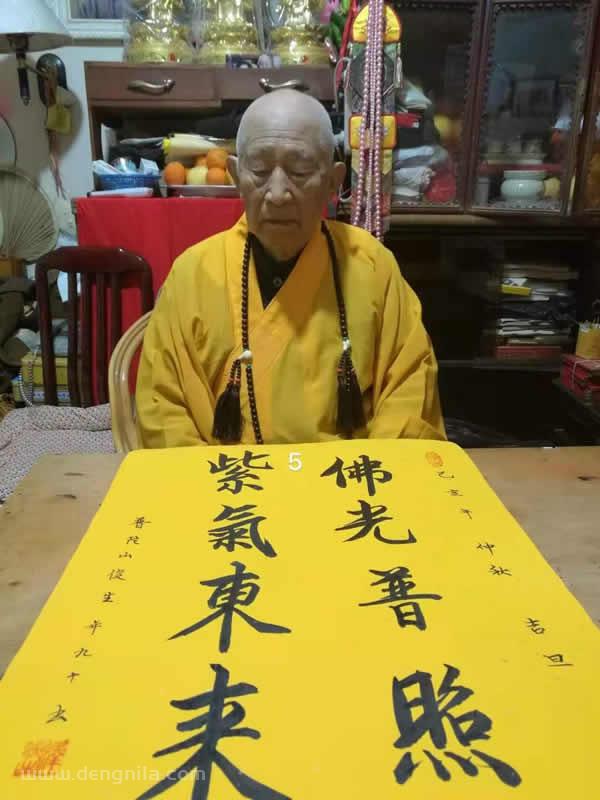 己亥年仲秋吉旦
佛光普照
紫氣東来
普陀山生年九十
5
www.dengnila.com